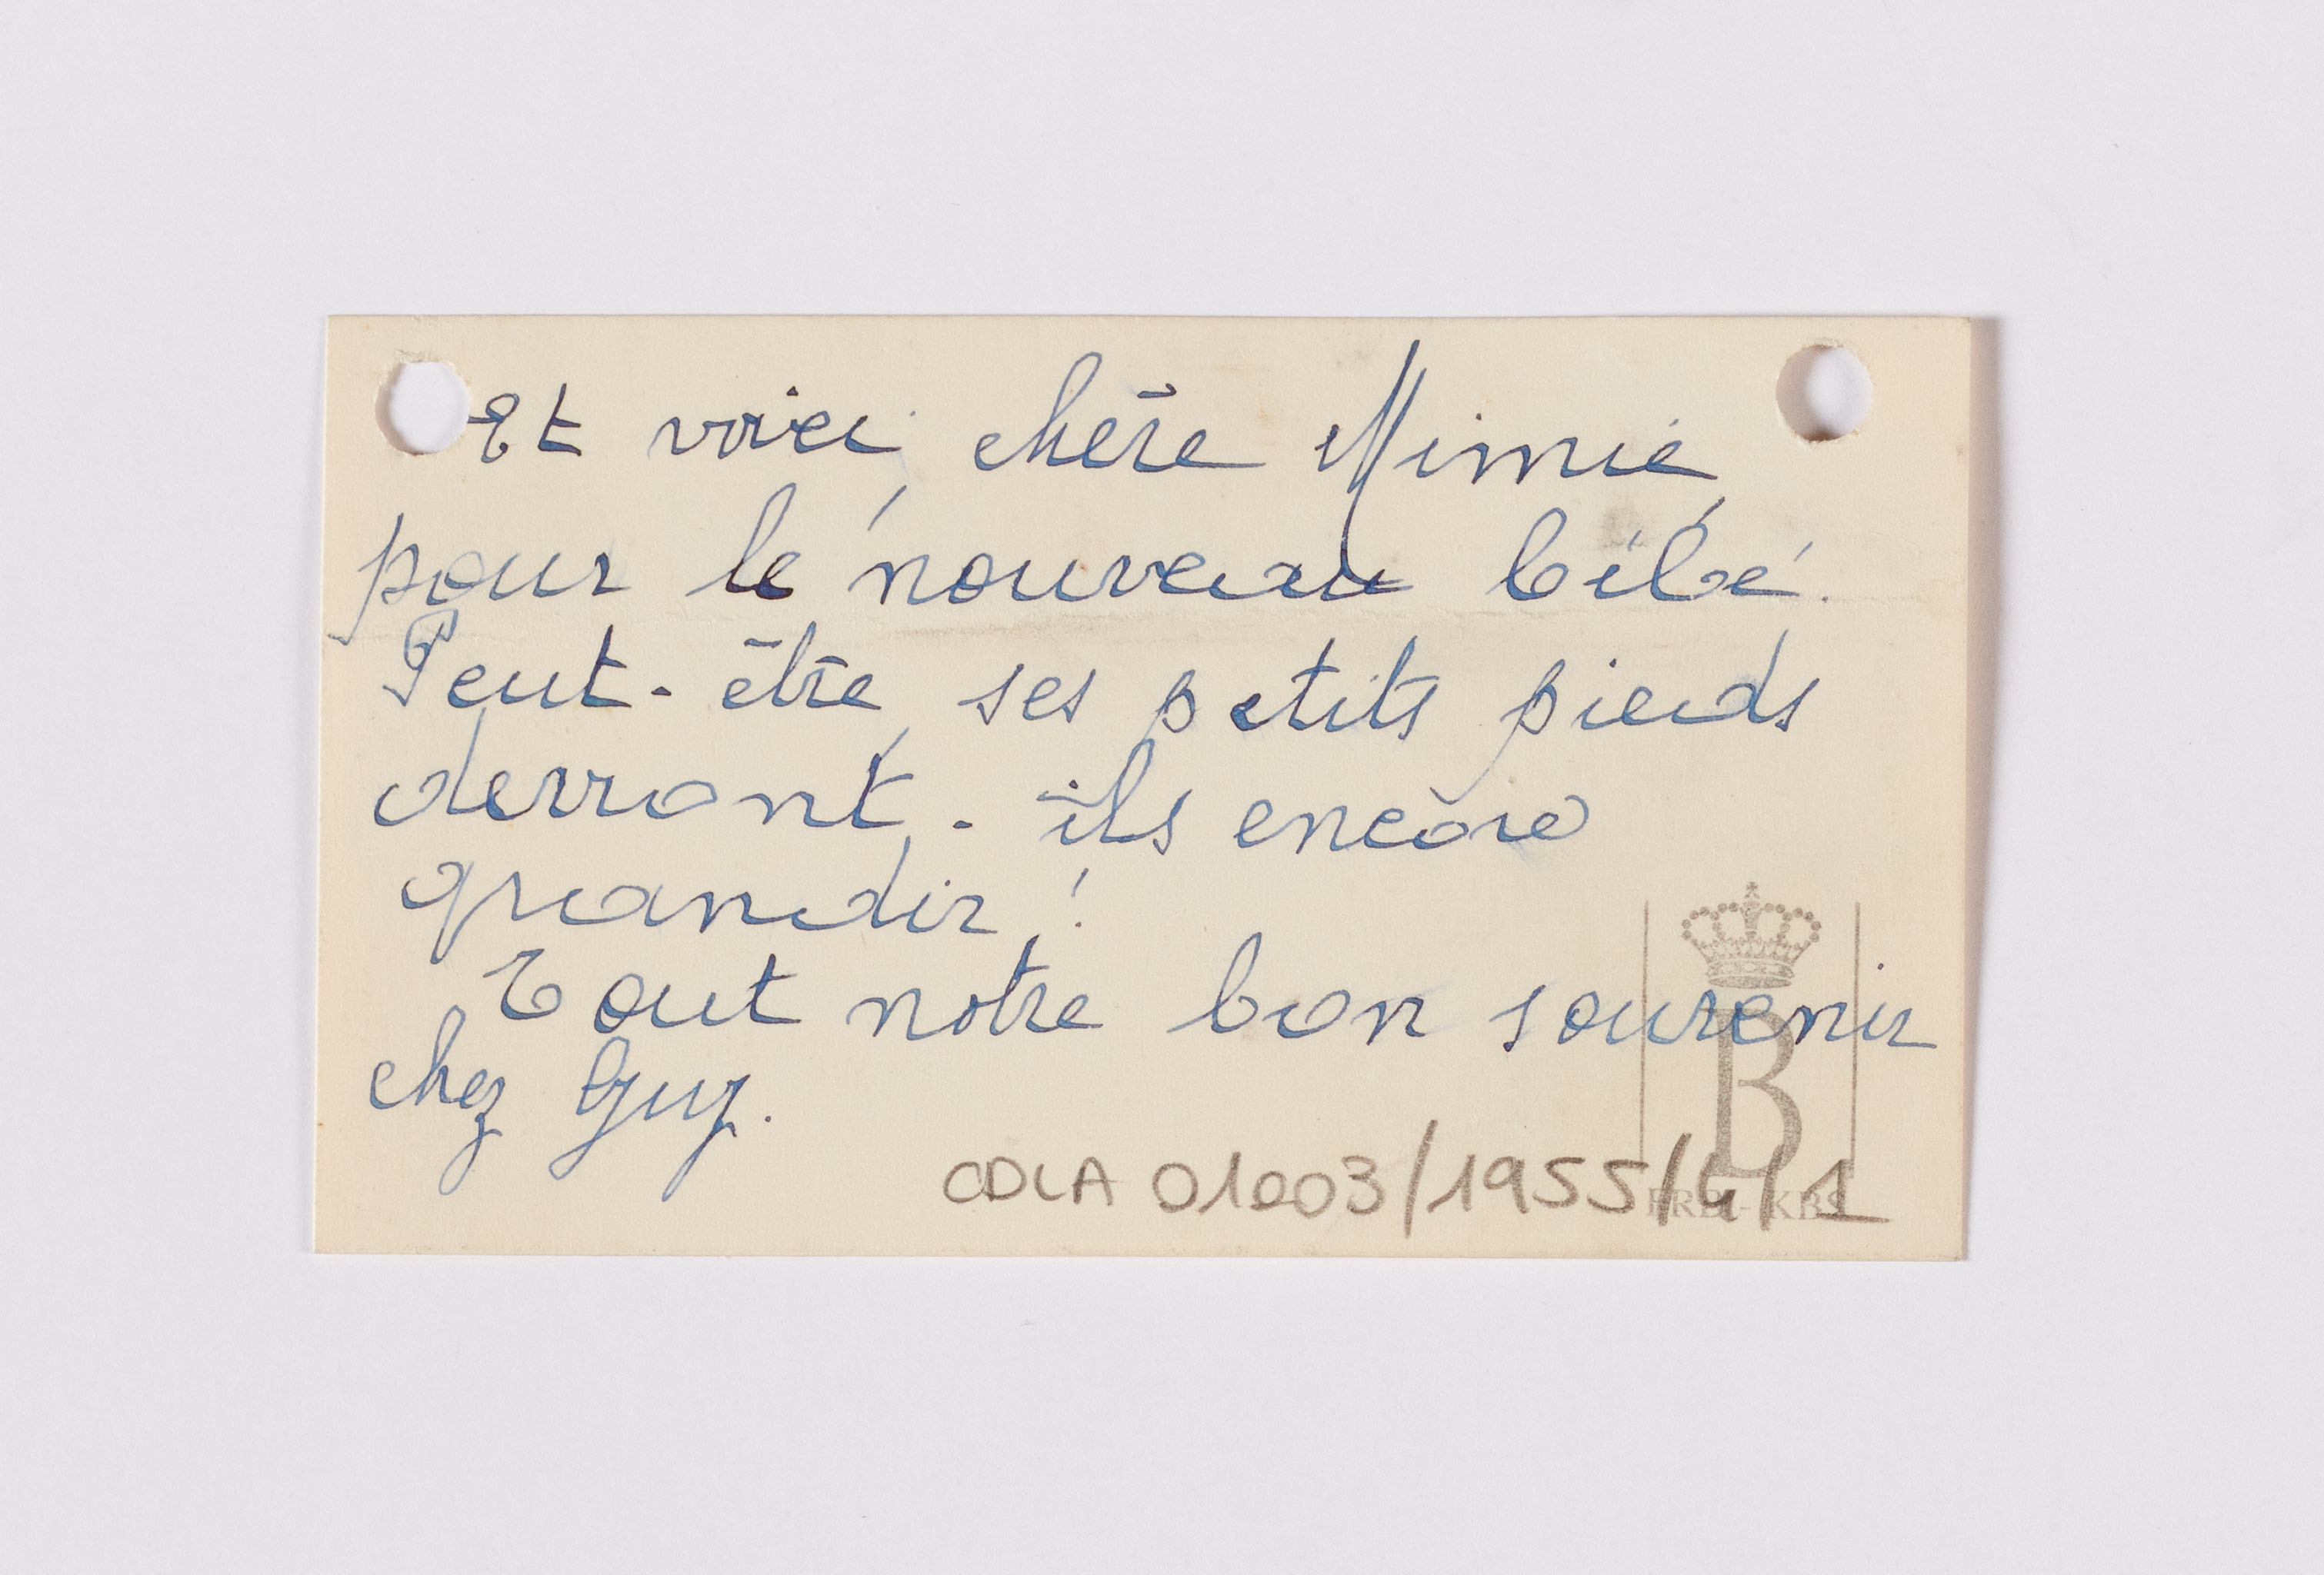 Et voici, chère Mimie,
pour le nouveau bébé.
Peut-être, ses petits pieds
devront-ils encore
grandir !
Tout notre bon souvenir
chez Guy.
B
CDLA 01003/1955/4/1
FRB-KBS